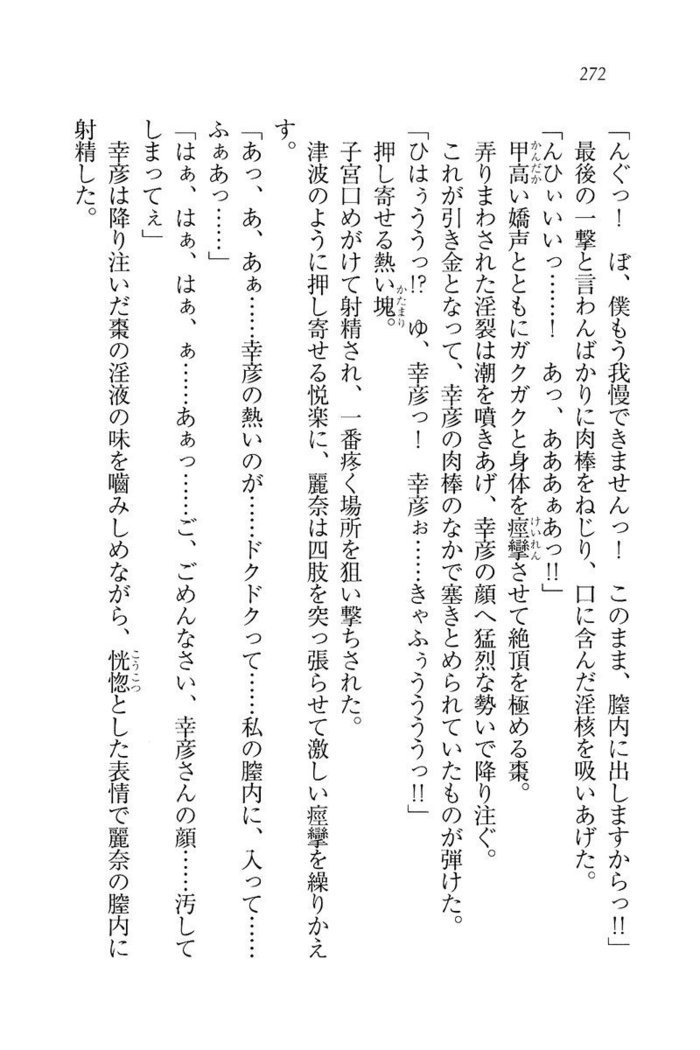 272
「んぐっ！　ぼ、僕もう我慢できませんっ！　このまま、膣内に出しますからっ!!」
最後の一撃と言わんばかりに肉棒をねじり、口に含んだ淫核を吸いあげた。
「んひぃいいっ……！　あっ、あああぁあっ!!」
甲高い嬌声とともにガクガクと身体を痙攣させて絶頂を極める棗。
弄りまわされた淫裂は潮を噴きあげ、幸彦の顔へ猛烈な勢いで降り注ぐ。
これが引き金となって、幸彦の肉棒のなかで塞きとめられていたものが弾けた。
「ひはぅううっ!?　ゆ、幸彦っ！　幸彦ぉ……きゃふぅうううっ!!」
押し寄せる熱い塊。
子宮口めがけて射精され、一番疼く場所を狙い撃ちされた。
津波のように押し寄せる悦楽に、麗奈は四肢を突っ張らせて激しい痙攣を繰りかえ
す。
「あっ、あ、あぁ……幸彦の熱いのが……ドクドクって……私の膣内に、入って……
ふぁあっ……」
「はぁ、はぁ、はぁ、ぁ……あぁっ……ご、ごめんなさい、幸彦さんの顔……汚して
しまってぇ」
幸彦は降り注いだ棗の淫液の味を嚙みしめながら、恍惚とした表情で麗奈の膣内に
射精した。